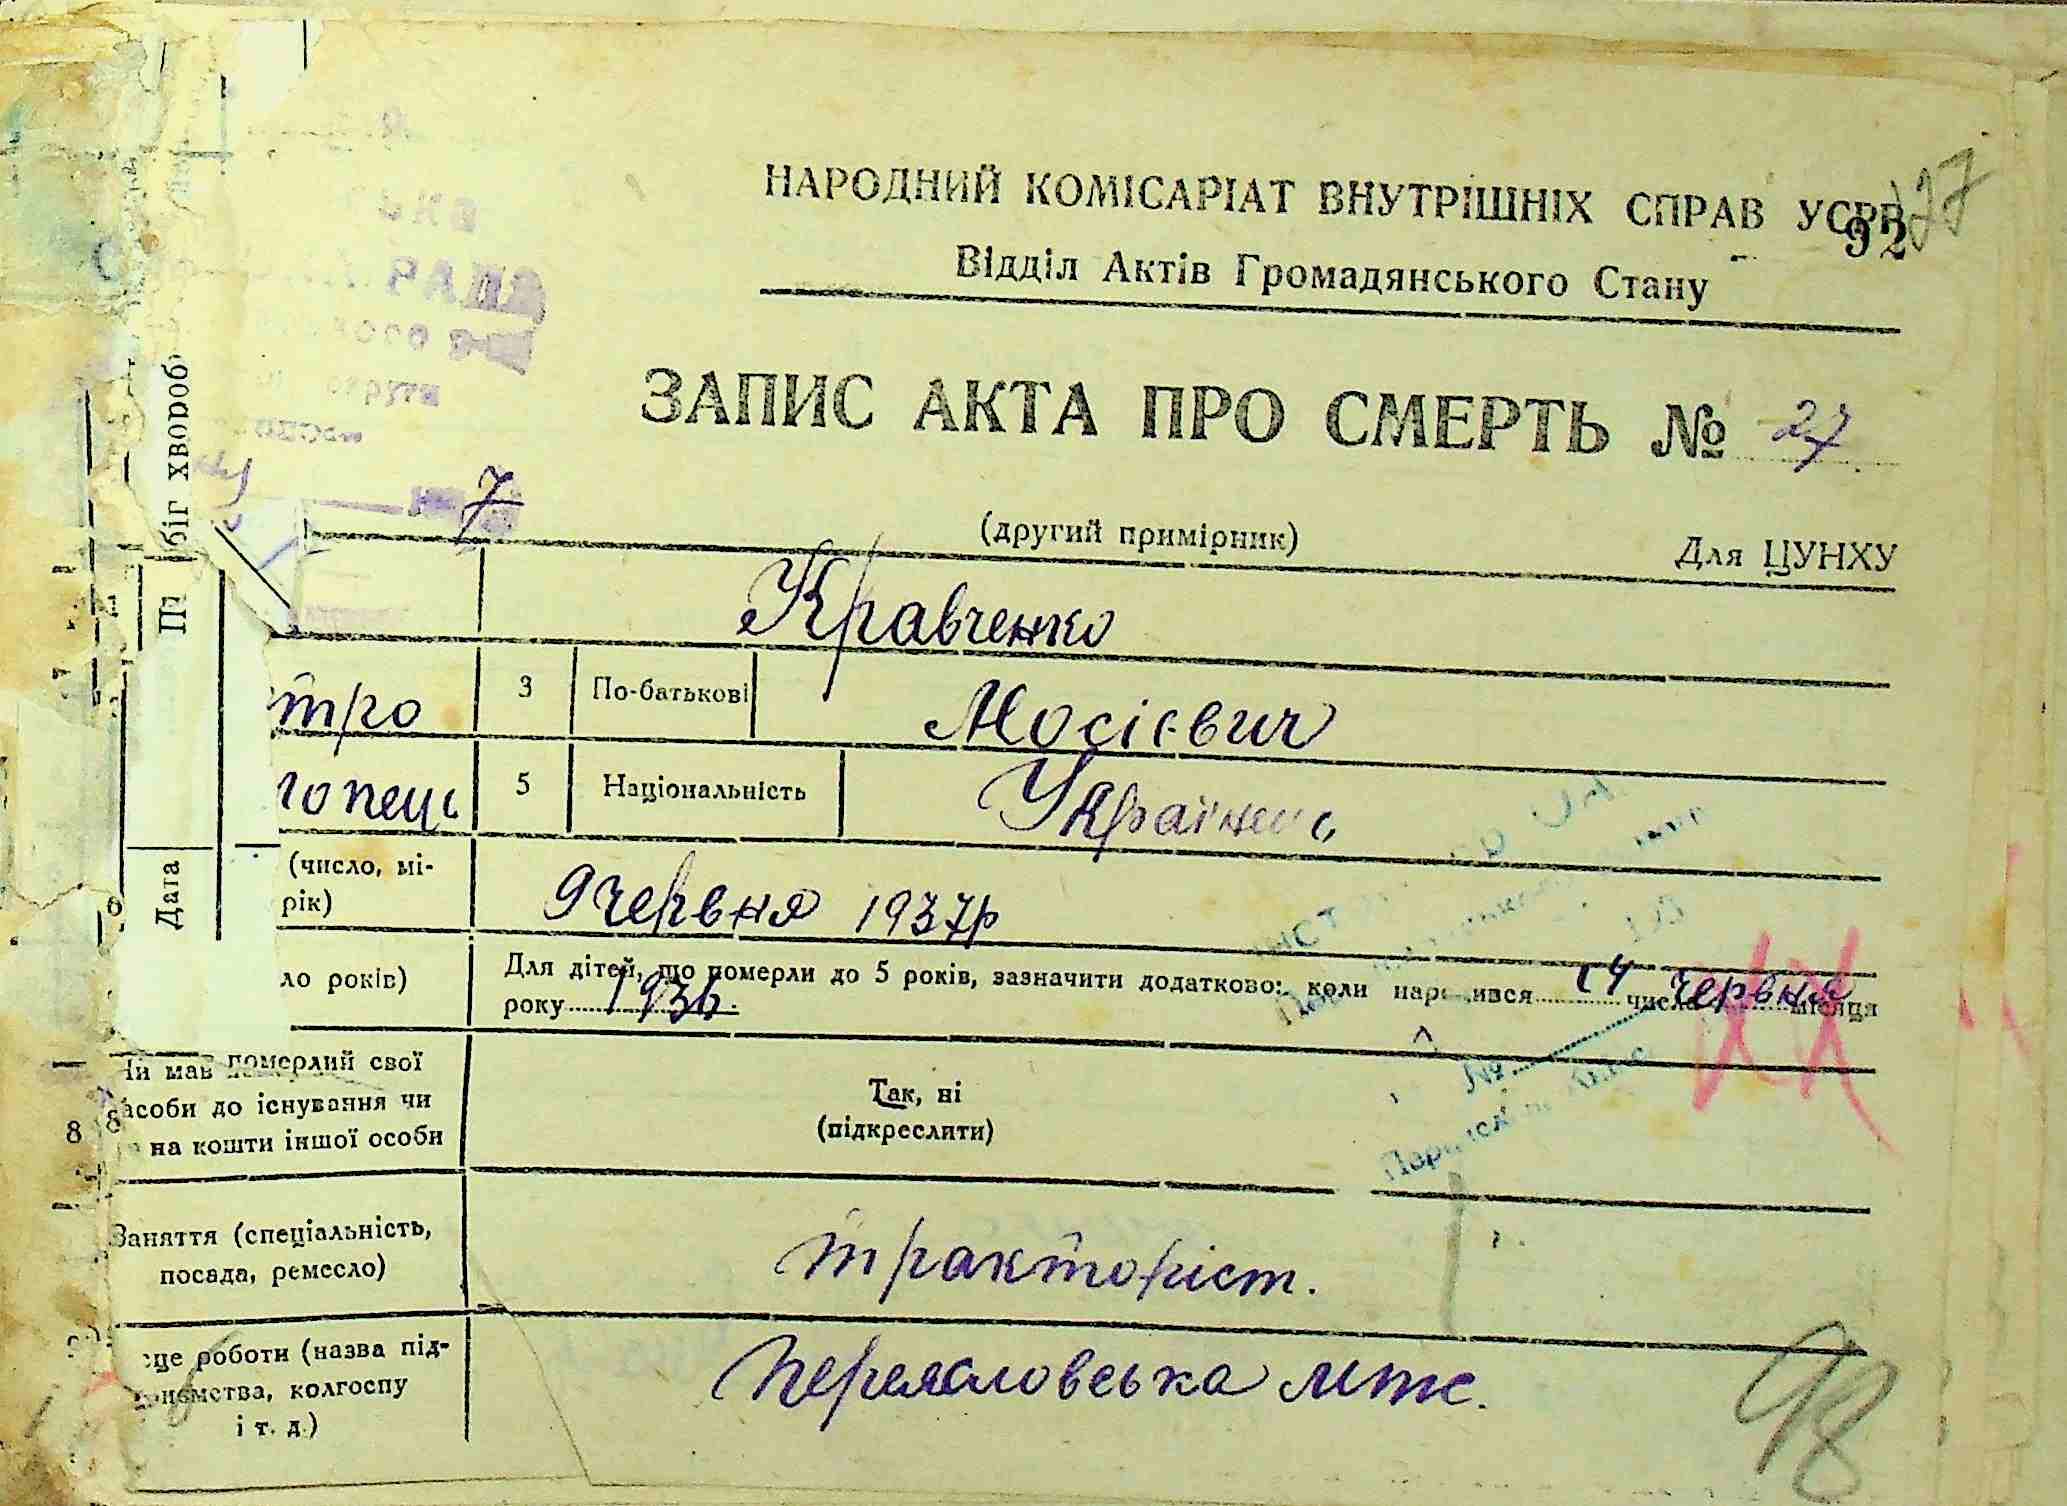 НАРОДНИЙ КОМІСАРІАТ ВНУТРІШНІХ СПРАВ УСРР
92
Відділ Актів Громадянського Стану
РАДА
округи
ЗАПИС АКТА ПРО СМЕРТЬ № 27
7
(другий примірник)
Для ЦУНХУ
біг хвороб
Кравченко
тро 3 По-батькові Мосієвич
опець 5 Національність Українець
Дата
(число, мі-
рік)
9 червня 1937р
ло років)
Для дітей, що померли до 5 років, зазначити додатково: коли народився 14 числа червня місяця
року 1936
8
Чи мав померлий свої
засоби до існування чи
на кошти іншої особи
Так, ні
(підкреслити)
Заняття (спеціальність,
посада, ремесло)
тракторіст.
сце роботи (назва під-
приємства, колгоспу
і т. д.)
Переясловська мтс.
98